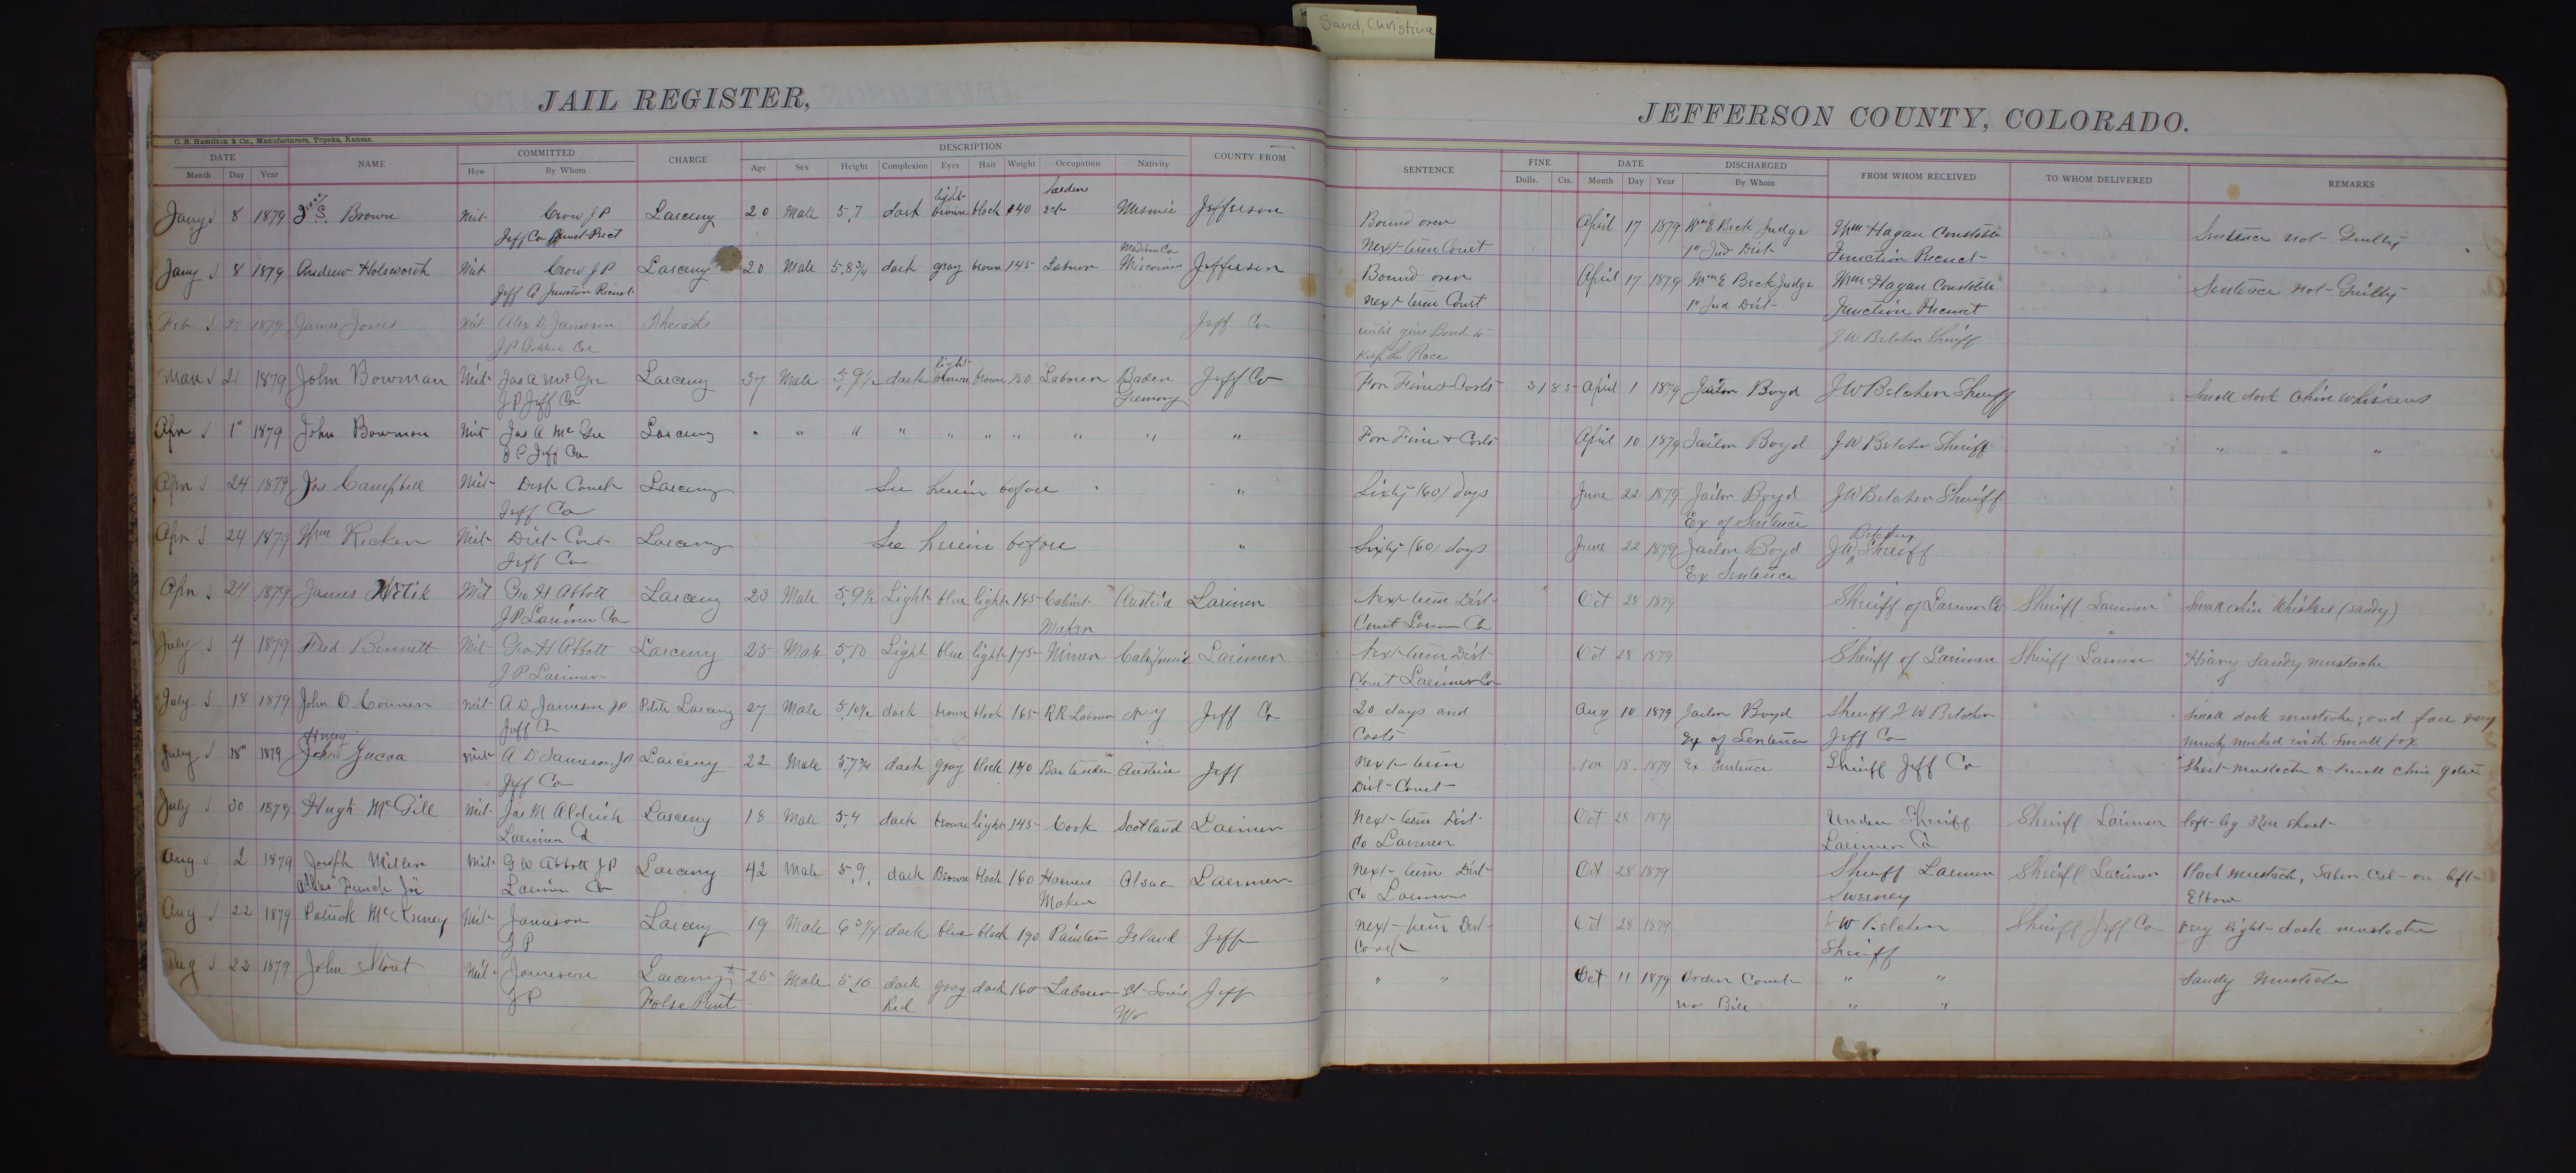 Sand, Christina
JAIL REGISTER,
JEFFERSON COUNTY, COLORADO.
C. B. Hamilton & Co., Manufacturers, Topeka, Kansas.
DATE NAME COMMITTED CHARGE DESCRIPTION COUNTY FROM SENTENCE FINE DATE DISCHARGED FROM WHOM RECEIVED TO WHOM DELIVERED REMARKS
Month Day Year How By Whom Age Sex Height Complexion Eyes Hair Weight Occupation Nativity Dolls. Cts. Month Day Year By Whom
light
Jany 8 1879 Brown Mit Crow J P Larceny 20 Male 5,7 dark brown black 140 Jefferson Bound over April 17 1879 Wm E Beck Judge Wm Hagan Constable Sentence not Guilty
Jeff Co Next term Court 1st Jud Dist Junction Precinct
Madison Co
Jany 8 1879 Andrew Holsworth Mit Crow J P Larceny 20 Male 5,8 3/4 dark gray brown 145 Laborer Wisconsin Jefferson Bound over April 17 1879 Wm E Beck Judge Wm Hagan Constable Sentence not Guilty
Jeff Co Junction Precinct Next term Court 1st Jud Dist Junction Precinct
Feb 27 1879 James Jones Mit Alex D Jameson Threats Jeff Co until give Bond to J W Belcher Sheriff
J P Golden Keep the Peace
light
Mar 21 1879 John Bowman Mit Jas A McGee Larceny 37 Male 5,9 1/2 dark brown brown 150 Laborer Baden Jeff Co For Fine & Costs 31 85 April 1 1879 Jailor Boyd J W Belcher Sheriff Small dark chin whiskers
J P Jeff Co Germany
Apr 1st 1879 John Bowman Mit Jas A McGee Larceny " " " " " " " " " " For Fine & Costs April 10 1879 Jailor Boyd J W Belcher Sheriff " " "
J P Jeff Co
Apr 24 1879 Jas Campbell Mit Dist Court Larceny See herein before " Sixty (60) days June 22 1879 Jailor Boyd J W Belcher Sheriff
Jeff Co Ex of Sentence
Belcher
Apr 24 1879 Wm Ricker Mit Dist Court Larceny See herein before " Sixty (60) days June 22 1879 Jailor Boyd J W Sheriff
Jeff Co Ex Sentence
Apr 24 1879 James Mit Geo H Abbott Larceny 23 Male 5,9 1/2 Light blue light 145 Cabinet Austria Larimer Next term Dist Oct 28 1879 Sheriff of Larimer Co Sheriff Larimer Small chin whiskers (sandy)
J P Larimer Co Maker Court Larimer Co
July 4 1879 Fred Bennett Mit Geo H Abbott Larceny 25 Male 5,10 Light blue light 175 Miner California Larimer Next term Dist Oct 28 1879 Sheriff of Larimer Sheriff Larimer Heavy Sandy mustache
J P Larimer Court Larimer Co
July 18 1879 John O Conner Mit A D Jameson J P Petit Larceny 27 Male 5,10 1/2 dark brown black 165 RR Laborer N Y Jeff Co 20 days and Aug 10 1879 Jailor Boyd Sheriff J W Belcher Small dark mustache; and face very
Jeff Co Costs Ex of Sentence Jeff Co much marked with Small pox
July 18" 1879 John Mit A D Jameson J P Larceny 22 Male 5,7 3/4 dark gray black 140 Bartender Austria Jeff Next term Nov 18 1879 Ex Sentence Sheriff Jeff Co Short mustache & small chin
Jeff Co Dist Court
July 30 1879 Hugh McGill Mit Jas M Aldrich Larceny 18 Male 5,4 dark brown light 145 Cook Scotland Larimer Next term Dist Oct 28 1879 Under Sheriff Sheriff Larimer left leg short
Larimer Co Co Larimer Larimer Co
Aug 2 1879 Joseph Miller Mit G W Abbott J P Larceny 42 Male 5,9, dark Brown black 160 Harness Alsac Larimer Next term Dist Oct 28 1879 Sheriff Larimer Sheriff Larimer Black mustach, Saber Cut on left
alias French Joe Larimer Co Maker Co Larimer Sweeney Elbow
Aug 22 1879 Patrick McKinney Mit Jameson Larceny 19 Male 6 dark blue black 190 Painter Ireland Jeff Next term Dist Oct 28 1879 J W Belcher Sheriff Jeff Co very light dark mustache
J P Court Sheriff
Aug 22 1879 John Stout Mit Jameson Larceny & 25 Male 5,10 dark gray dark 160 Laborer St Louis Jeff " " Oct 11 1879 Order Court " " Sandy Mustache
J P Red Mo no Bill " "